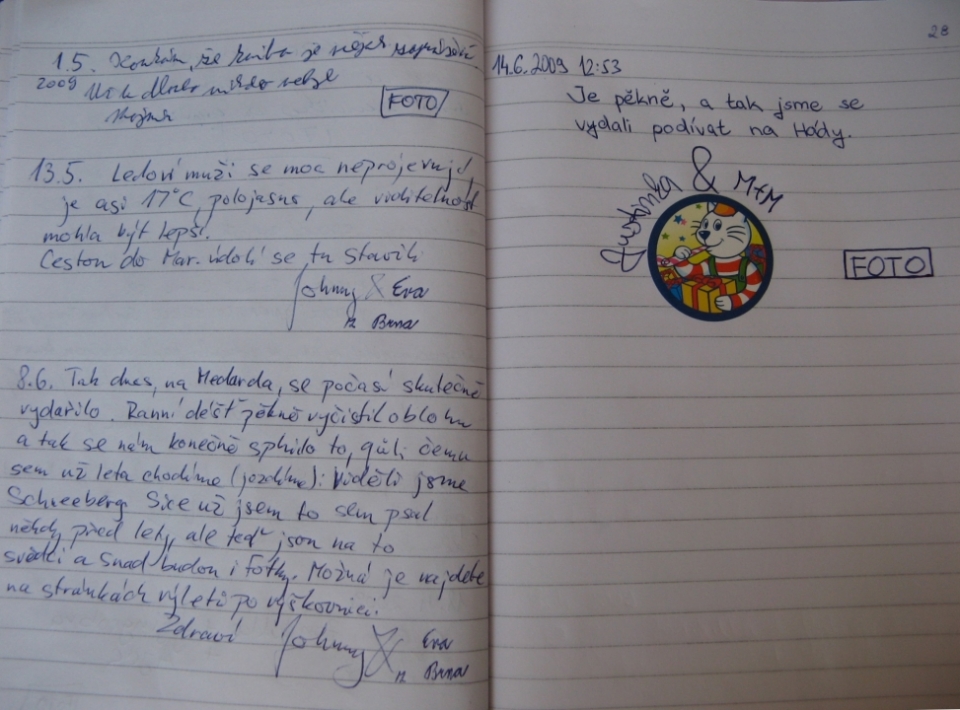 1.5. Koukám, že kniha je nějak
2009
FOTO
13.5. Ledoví muži se moc neprojevují,
je asi 17°C, polojasno, ale viditelnost
mohla být lepší.
Cestou do Mar. údolí se tu stavili
Johnny & Eva
z Brna
8.6. Tak dnes, na Medarda, se počasí skutečně
vydařilo. Ranní déšť pěkně vyčistil oblohu
a tak se nám konečně splnilo to, kůli čemu
sem už leta chodíme (jezdíme): Viděli jsme
Schneeberg. Sice už jsem to sem psal
někdy před lety, ale teď jsou na to
svědci a snad budou i fotky. Možná je najdete
na stránkách výletů po výškovnici.
Zdraví Johnny & Eva
z Brna
28
14.6.2009 12:53
Je pěkně, a tak jsme se
vydali podívat na Hády.
Justýnka & M+M
FOTO